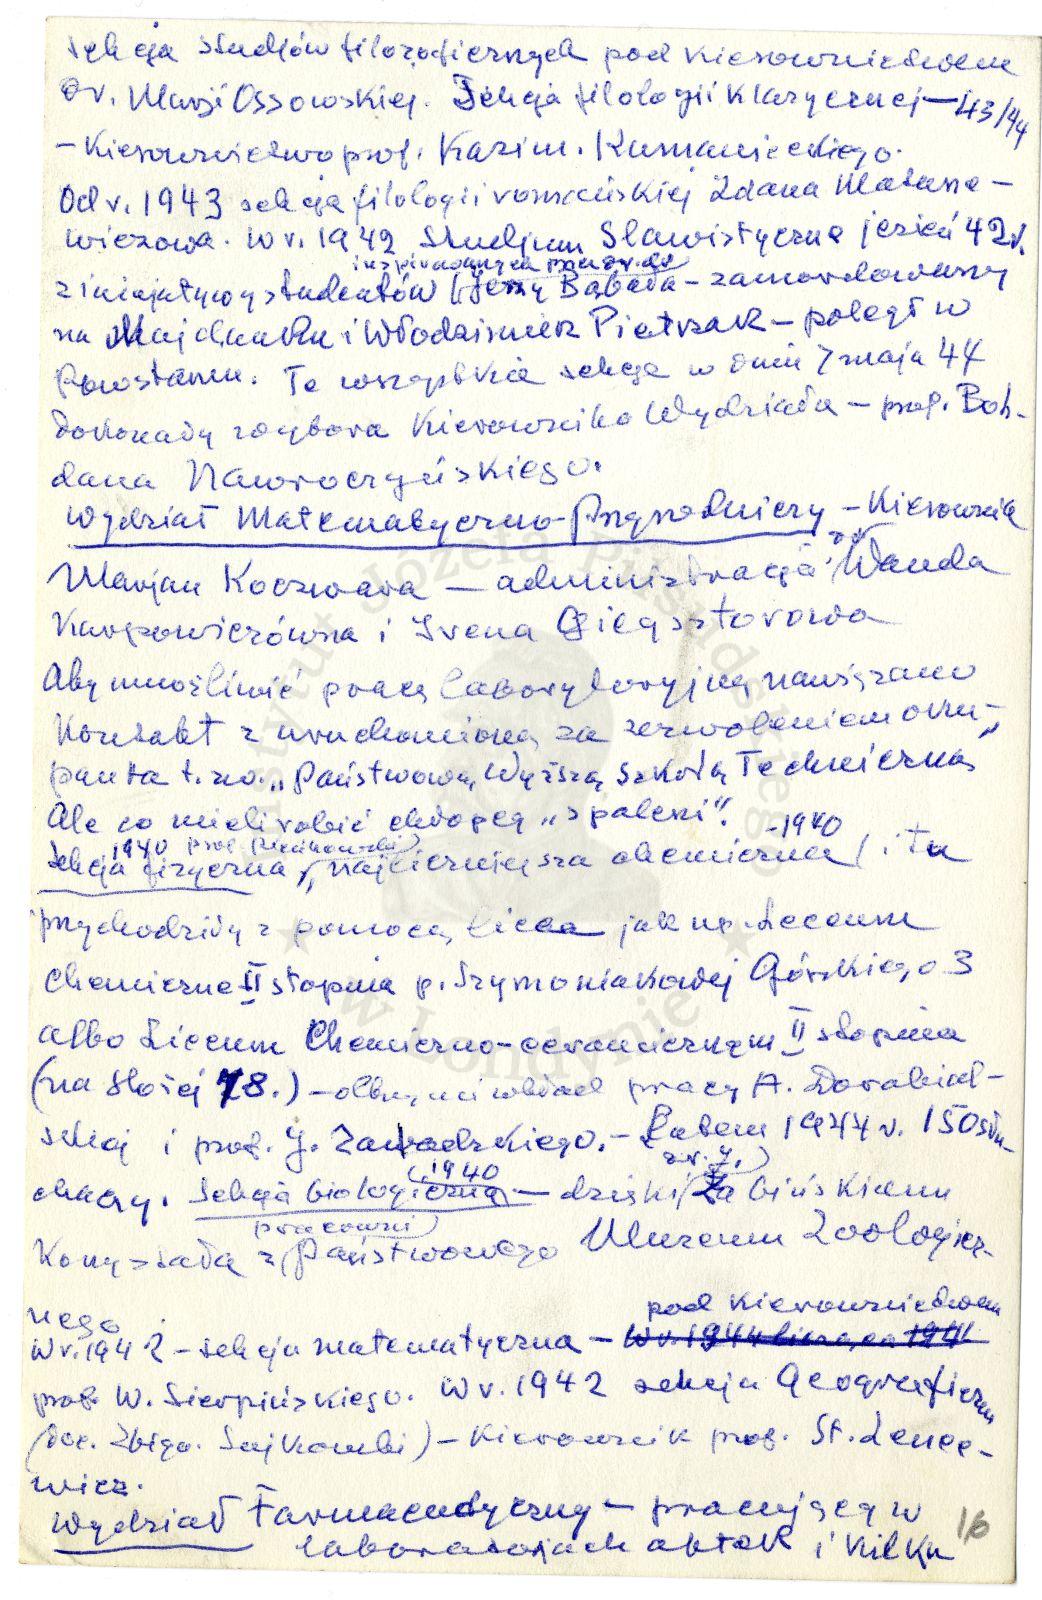 Sekcja studjów filozoficznych pod kierownictwem
Dr. Marji Ossowskiej. Sekcja filologii klasycznej – 43/44
– Kierownictwo prof. Kazim. Kumanieckiego.
Od r. 1943 sekcja filologii romańskiej Zdana Matusze-
wiczowa. W r. 1942 Studjum Slawistyczne jesień 42 r.
z inicjatywy studentów Jerzy Bąbała – zamordowany
na Majdanku i Włodzimierz Pietrzak – poległ w
Powstaniu. Te wszystkie sekcje w dniu 7 maja 44
dokonały wyboru Kierownika Wydziału – prof. Boh-
dana Nawroczyńskiego.
Wydział Matematyczno-Przyrodniczy – Kierownik
Marjan Koczwara – administracja Wanda
Karpowiczówna i Irena Giegsztorowa
Aby umożliwić pracę laboryloryjną nawiązano
Kontakt z uruchomioną za zezwoleniem oku-
panta t.zw. „Państwową Wyższą Szkołą Techniczną
Ale co mieli robić chłopcy „spaleni".
1940 prof. -1940
Sekcja fizyczna, najliczniejsza chemiczna, i tu
przychodziły z pomocą licea jak np. Liceum
Chemiczne II stopnia p. Szymoniakowej Górskiego 3
albo Liceum Chemiczno-ceramicznym II stopnia
(na Hożej 78.) – olbrzymi wkład pracy A. Dorabial-
skiej i prof. J. Zawadzkiego. – Latem 1944 r. 150 słu-
chaczy. Sekcja biologiczna (1940 – dzięki Żabińskiemu
Korzystała z (pracowni) Państwowego Muzeum Zoologicz-
nego
pod Kierownictwem
W r. 1942 – sekcja matematyczna –
prof. W. Sierpińskiego. W r. 1942 sekcja Geograficzna
(doc. Zbign. Sujkowski) – Kierownik prof. St. Lence-
wicz.
Wydział Farmaceutyczny – pracujący w
laboratorjach aptek i kilku
16
Instytut Józefa Piłsudskiego
w Londynie